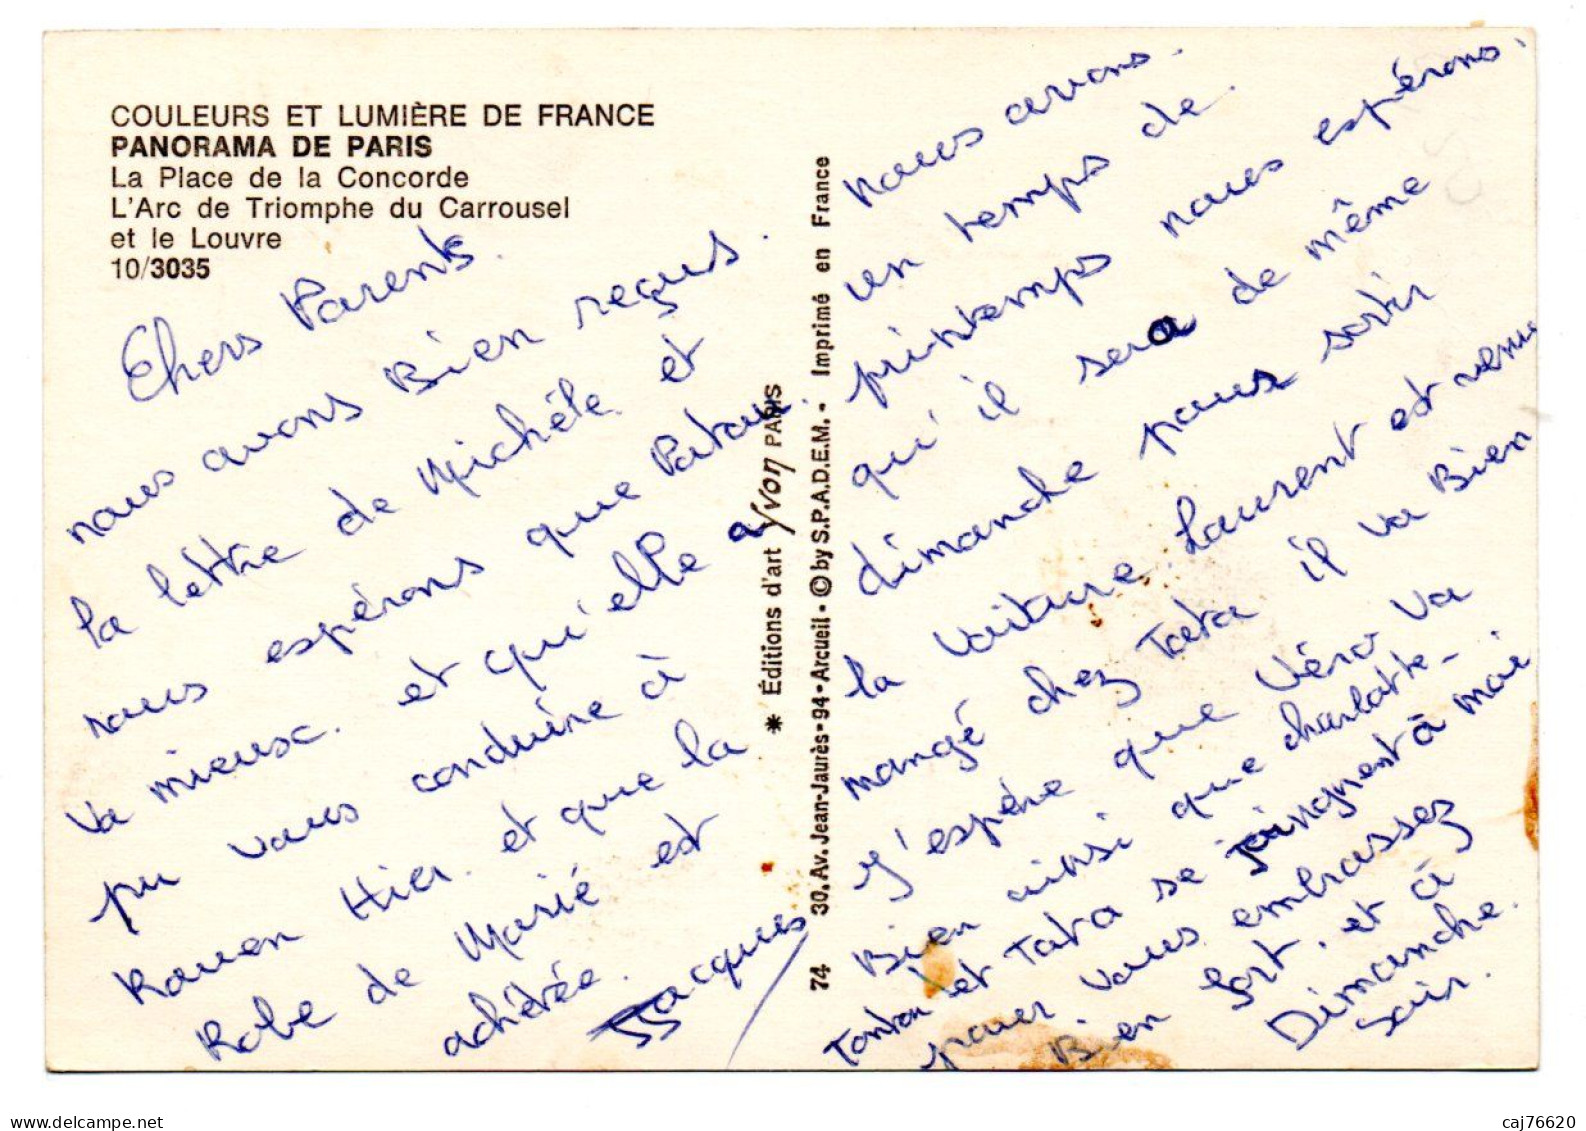 COULEURS ET LUMIÈRE DE FRANCE
PANORAMA DE PARIS
La Place de la Concorde
L'Arc de Triomphe du Carrousel
et le Louvre
10/3035
Chers Parents.
nous avons Bien reçus.
la lettre de Michéle et
nous espérons que Patou.
va mieux. et qu'elle a
pu vous conduire à
Rouen Hier. et que la
Robe de Marié est
achétée.
Jacques
* Éditions d'art Yvon PARIS
30, Av. Jean-Jaurès • 94 • Arcueil • © by S.P.A.D.E.M. - Imprimé en France
74
nous avons.
un temps de.
printemps nous espérons.
qu'il sera de même
dimanche pour sortir
la voiture. Laurent est venu
mangé chez Tata il va Bien
J'espére que Véro va
Bien ainsi que charlotte -
Tonton et Tata se joingnent à moi
pour vous embrassez
Bien fort. et à
Dimanche.
soir.
delcampe.net
caj76620